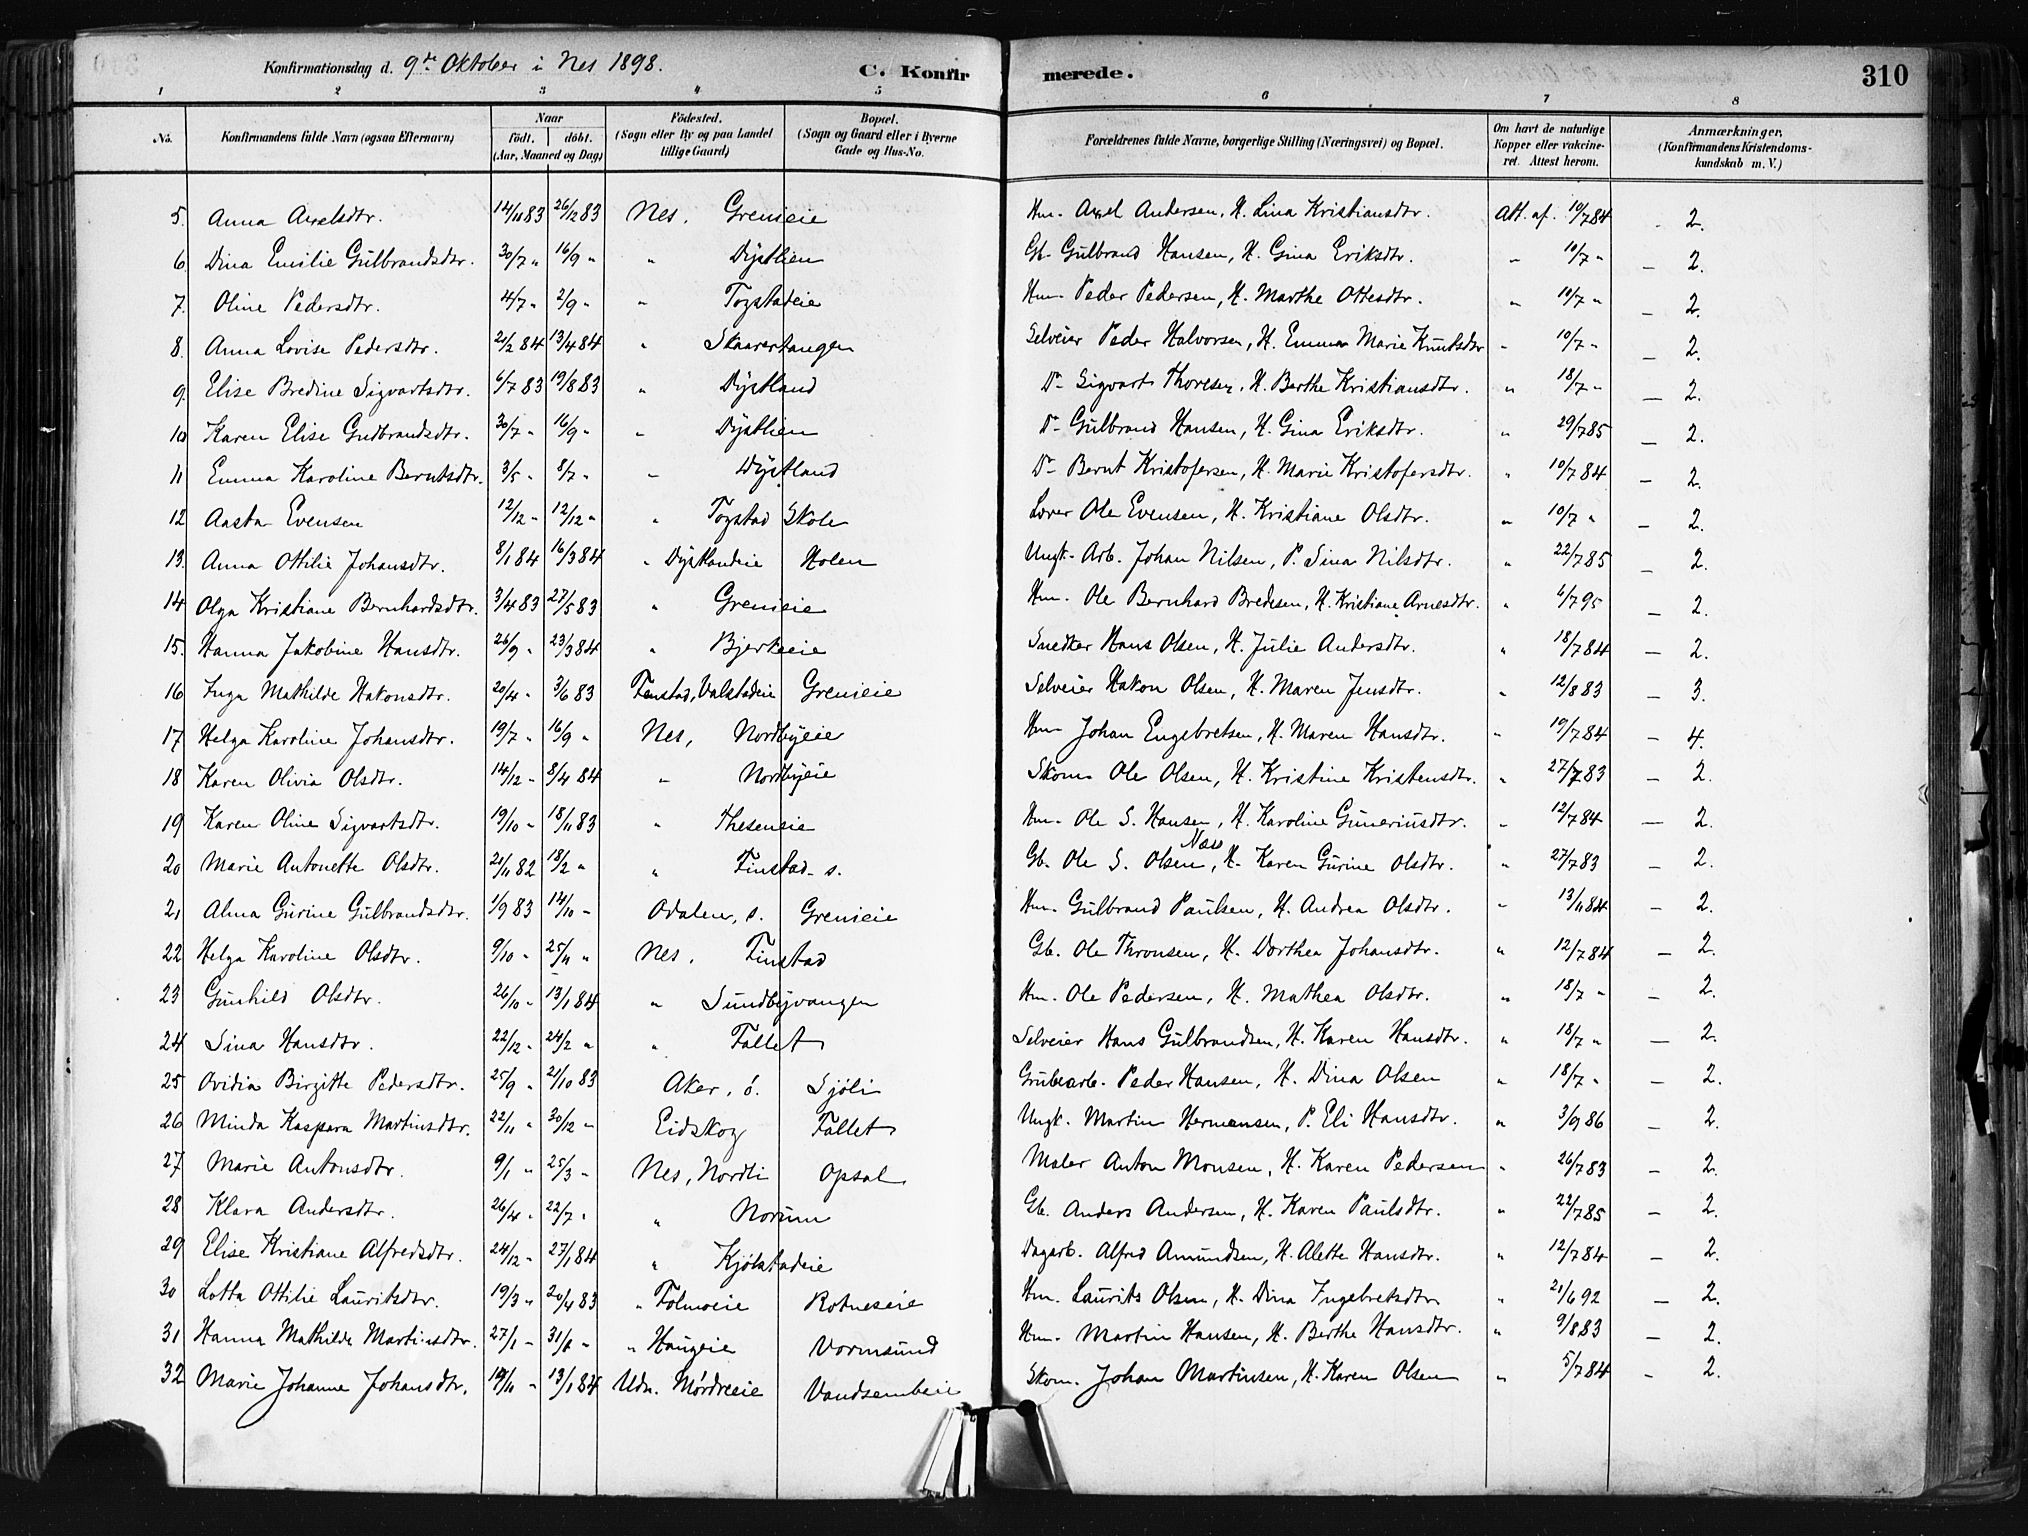 Konfirmationsdag d. 9de Oktober i Nes 1898. C. Konfirmerede. 310
1 2 3 4 5 6 7 8
No. Konfirmandens fulde Navn (ogsaa Efternavn) Naar födt. döbt. (Aar, Maaned og Dag) Födested. (Sogn eller By og paa Landet tillige Gaard) Bopæl. (Sogn og Gaard eller i Byerne Gade og Hus-No. Forældrenes fulde Navne, borgerlige Stilling (Næringsvei) og Bopæl. Om havt de naturlige Kopper eller vakcineret. Attest herom. Anmærkninger, (Konfirmandens Kristendomskundskab m. V.)
5. Anna Axelsdtr. 14/11 83 26/12 83 Nes. Grenieie Hm. Axel Andersen, H. Lina Kristiansdtr. Att. af. 10/7 84 - 2.
6. Dina Emilie Gulbrandsdtr. 30/7 " 16/9 " " Dystlien Gb. Gulbrand Hansen, H. Gina Eriksdtr. " 10/7 " - 2.
7. Oline Pedersdtr. 4/7 " 2/9 " " Togstadeie Hm. Peder Pedersen, H. Marthe Ottesdtr. " 10/7 " - 2.
8. Anna Lovise Pedersdtr. 21/2 84 13/4 84 " Skaarertangen Selveier Peder Halvorsen, H. Emma Marie Knutsdtr " 10/7 " - 2.
9. Elise Bredine Sigvartsdtr. 6/7 83 19/8 83 " Dystland Do Sigvart Thoresen, H. Berthe Kristiansdtr. " 18/7 " - 2.
10 Karen Elise Gudbrandsdtr. 30/7 " 16/9 " " Dystlien Do Gulbrand Hansen, H. Gina Eriksdtr. " 29/7 85 - 2.
11 Emma Karoline Berntsdtr. 3/5 " 8/7 " " Dystland Do Bernt Kristofersen, H. Marie Kristofersdtr. " 10/7 84 - 2.
12 Aasta Evensen 12/12 " 12/12 " " Togstad Skole Lærer Ole Evensen, H. Kristiane Olsdtr. " 10/7 " - 2.
13. Anna Ottilie Johansdtr. 8/1 84 16/3 84 " Dystlandeie Holen Ungk. Arb. Johan Nilsen, P. Sina Nilsdtr. " 22/7 85 - 2.
14 Olga Kristiane Bernhardsdtr. 3/4 83 27/5 83 " Grenieie Hm. Ole Bernhard Bredesen, H. Kristiane Arnesdtr. " 6/7 95 - 2.
15. Hanna Jakobine Hansdtr. 26/9 " 23/3 84 " Bjerkeeie Snedker Hans Olsen, H. Julie Andersdtr. " 18/7 84 - 2.
16 Inga Mathilde Hakonsdtr. 20/4 " 3/6 83 Fenstad, Valstadeie Grenieie Selveier Hakon Olsen, H. Maren Jensdtr. " 12/8 83 - 3.
17 Helga Karoline Johansdtr. 19/7 " 16/9 " Nes, Nordbyeie Hm Johan Engebretsen, H. Maren Hansdtr. " 19/7 84 - 4.
18 Karen Olivia Olsdtr. 14/12 " 8/4 84 " Nordbyeie Skom. Ole Olsen, H. Kristine Kristensdtr. " 27/7 83 - 2.
19 Karen Oline Sigvartsdtr. 19/10 " 18/11 83 " Theseneie Hm. Ole S. Hansen, H. Karoline Guneriusdtr. " 12/7 84 - 2.
20 Marie Antonette Olsdtr. 21/11 82 18/2 " " Finstad s. Gb. Ole S. Olsen Næs, H. Karen Gurine Olsdtr. " 27/7 83 - 2.
21 Alma Gurine Gulbrandsdtr. 1/9 83 14/10 " Odalen, s. Grenieie Hm. Gulbrand Paulsen, H. Andrea Olsdtr. " 13/11 84 - 2.
22 Helga Karoline Olsdtr. 9/10 " 25/11 " Nes. Finstad Gb. Ole Thronsen, H. Dorthea Johansdtr. " 12/7 84 - 2.
23 Gunhild Olsdtr. 26/10 " 13/1 84 " Sundbyvangen Hm. Ole Pedersen, H. Mathea Olsdtr. " 18/7 " - 2.
24 Sina Hansdtr. 22/12 " 24/2 " " Fallet Selveier Hans Gulbrandsen, H. Karen Hansdtr. " 18/7 " - 2.
25 Ovidia Birgitte Pedersdtr. 25/9 " 21/10 83 Aker, ö. Sjöli Grubearb. Peder Hansen, H. Dina Olsen " 18/7 " - 2.
26 Minda Kaspara Martinsdtr. 22/11 " 30/12 " Eidskog Fallet Ungk. Martin Hermansen, P. Eli Hansdtr. " 3/9 86 - 2.
27 Marie Antonsdtr. 9/1 " 25/3 " Nes, Nordli Opsal Maler Anton Monsen, H. Karen Pedersen " 26/7 83 - 2.
28 Klara Andersdtr. 26/4 " 22/7 " " Norum Gb. Anders Andersen, H. Karen Paulsdtr. " 22/7 85 - 2.
29 Elise Kristiane Alfredsdtr. 24/12 " 27/1 84 " Kjölstadeie Dagarb. Alfred Amundsen, H. Alette Hansdtr. " 12/7 84 - 2.
30 Lotta Ottilie Lauritsdtr. 19/3 " 20/4 83 " Folmoeie Rotneseie Hm. Laurits Olsen, H. Dina Ingebretsdtr " 21/6 92 - 2.
31 Hanna Mathilde Martinsdtr. 27/1 " 31/6 " " Haugeie Vormsund Hm. Martin Hansen, H. Berthe Hansdtr. " 9/8 83 - 2.
32 Marie Johanne Johansdtr. 19/11 " 13/1 84 Udn. Mørdreeie Vandsembeie Skom. Johan Martinsen, H. Karen Olsen " 5/7 84 - 2.